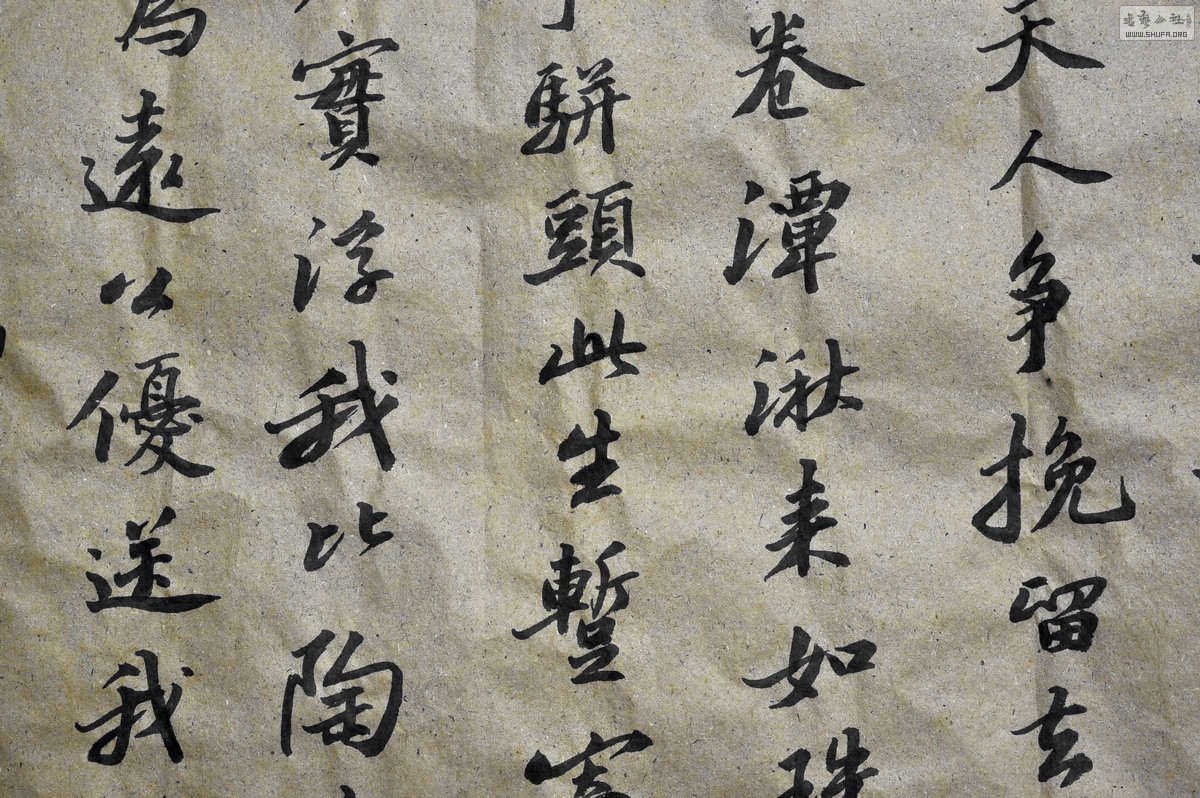 天人争挽留去
卷潭湫来如珠
駢頭此生暫寄
實浮我比陶
為遠公優送我
書藝公社
WWW.SHUFA.ORG